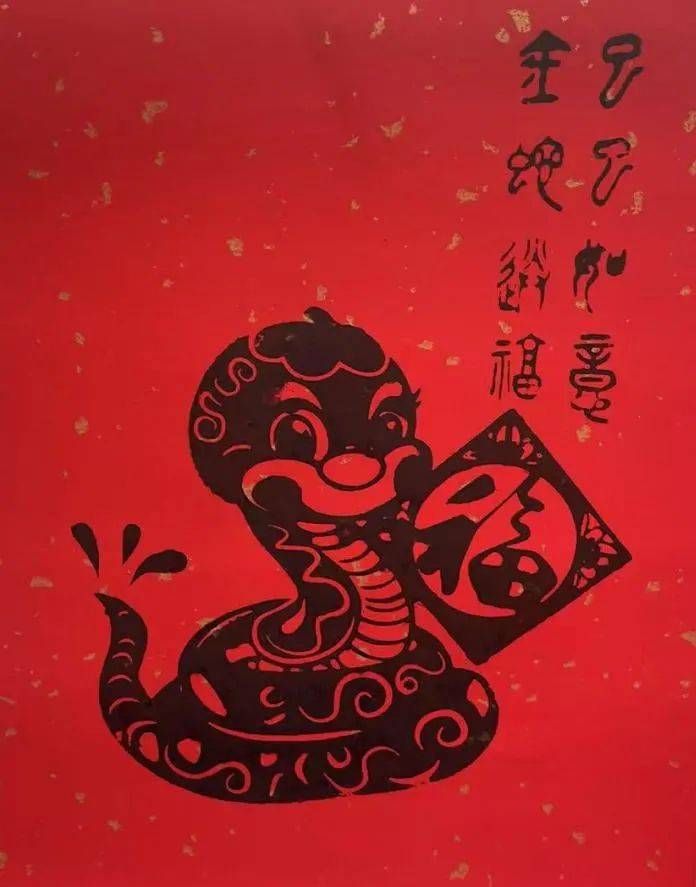 巳巳如意
金蛇送福
福